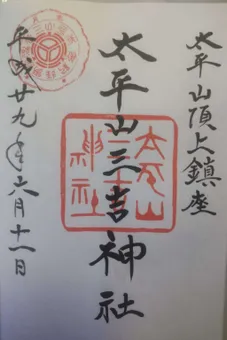 太平山頂上鎮座
太平山三吉神社
平成廿九年六月十一日